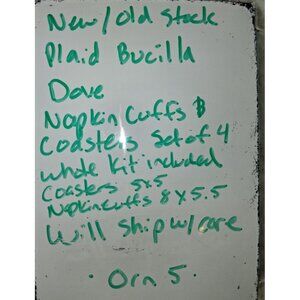 New/old Stock
Plaid Bucilla
Dove
Napkin Cuffs &
Coasters Set of 4
whole kit included
Coasters 5x5
Napkin cuffs 8 x 5.5
Will ship w/care
· Orn 5 ·